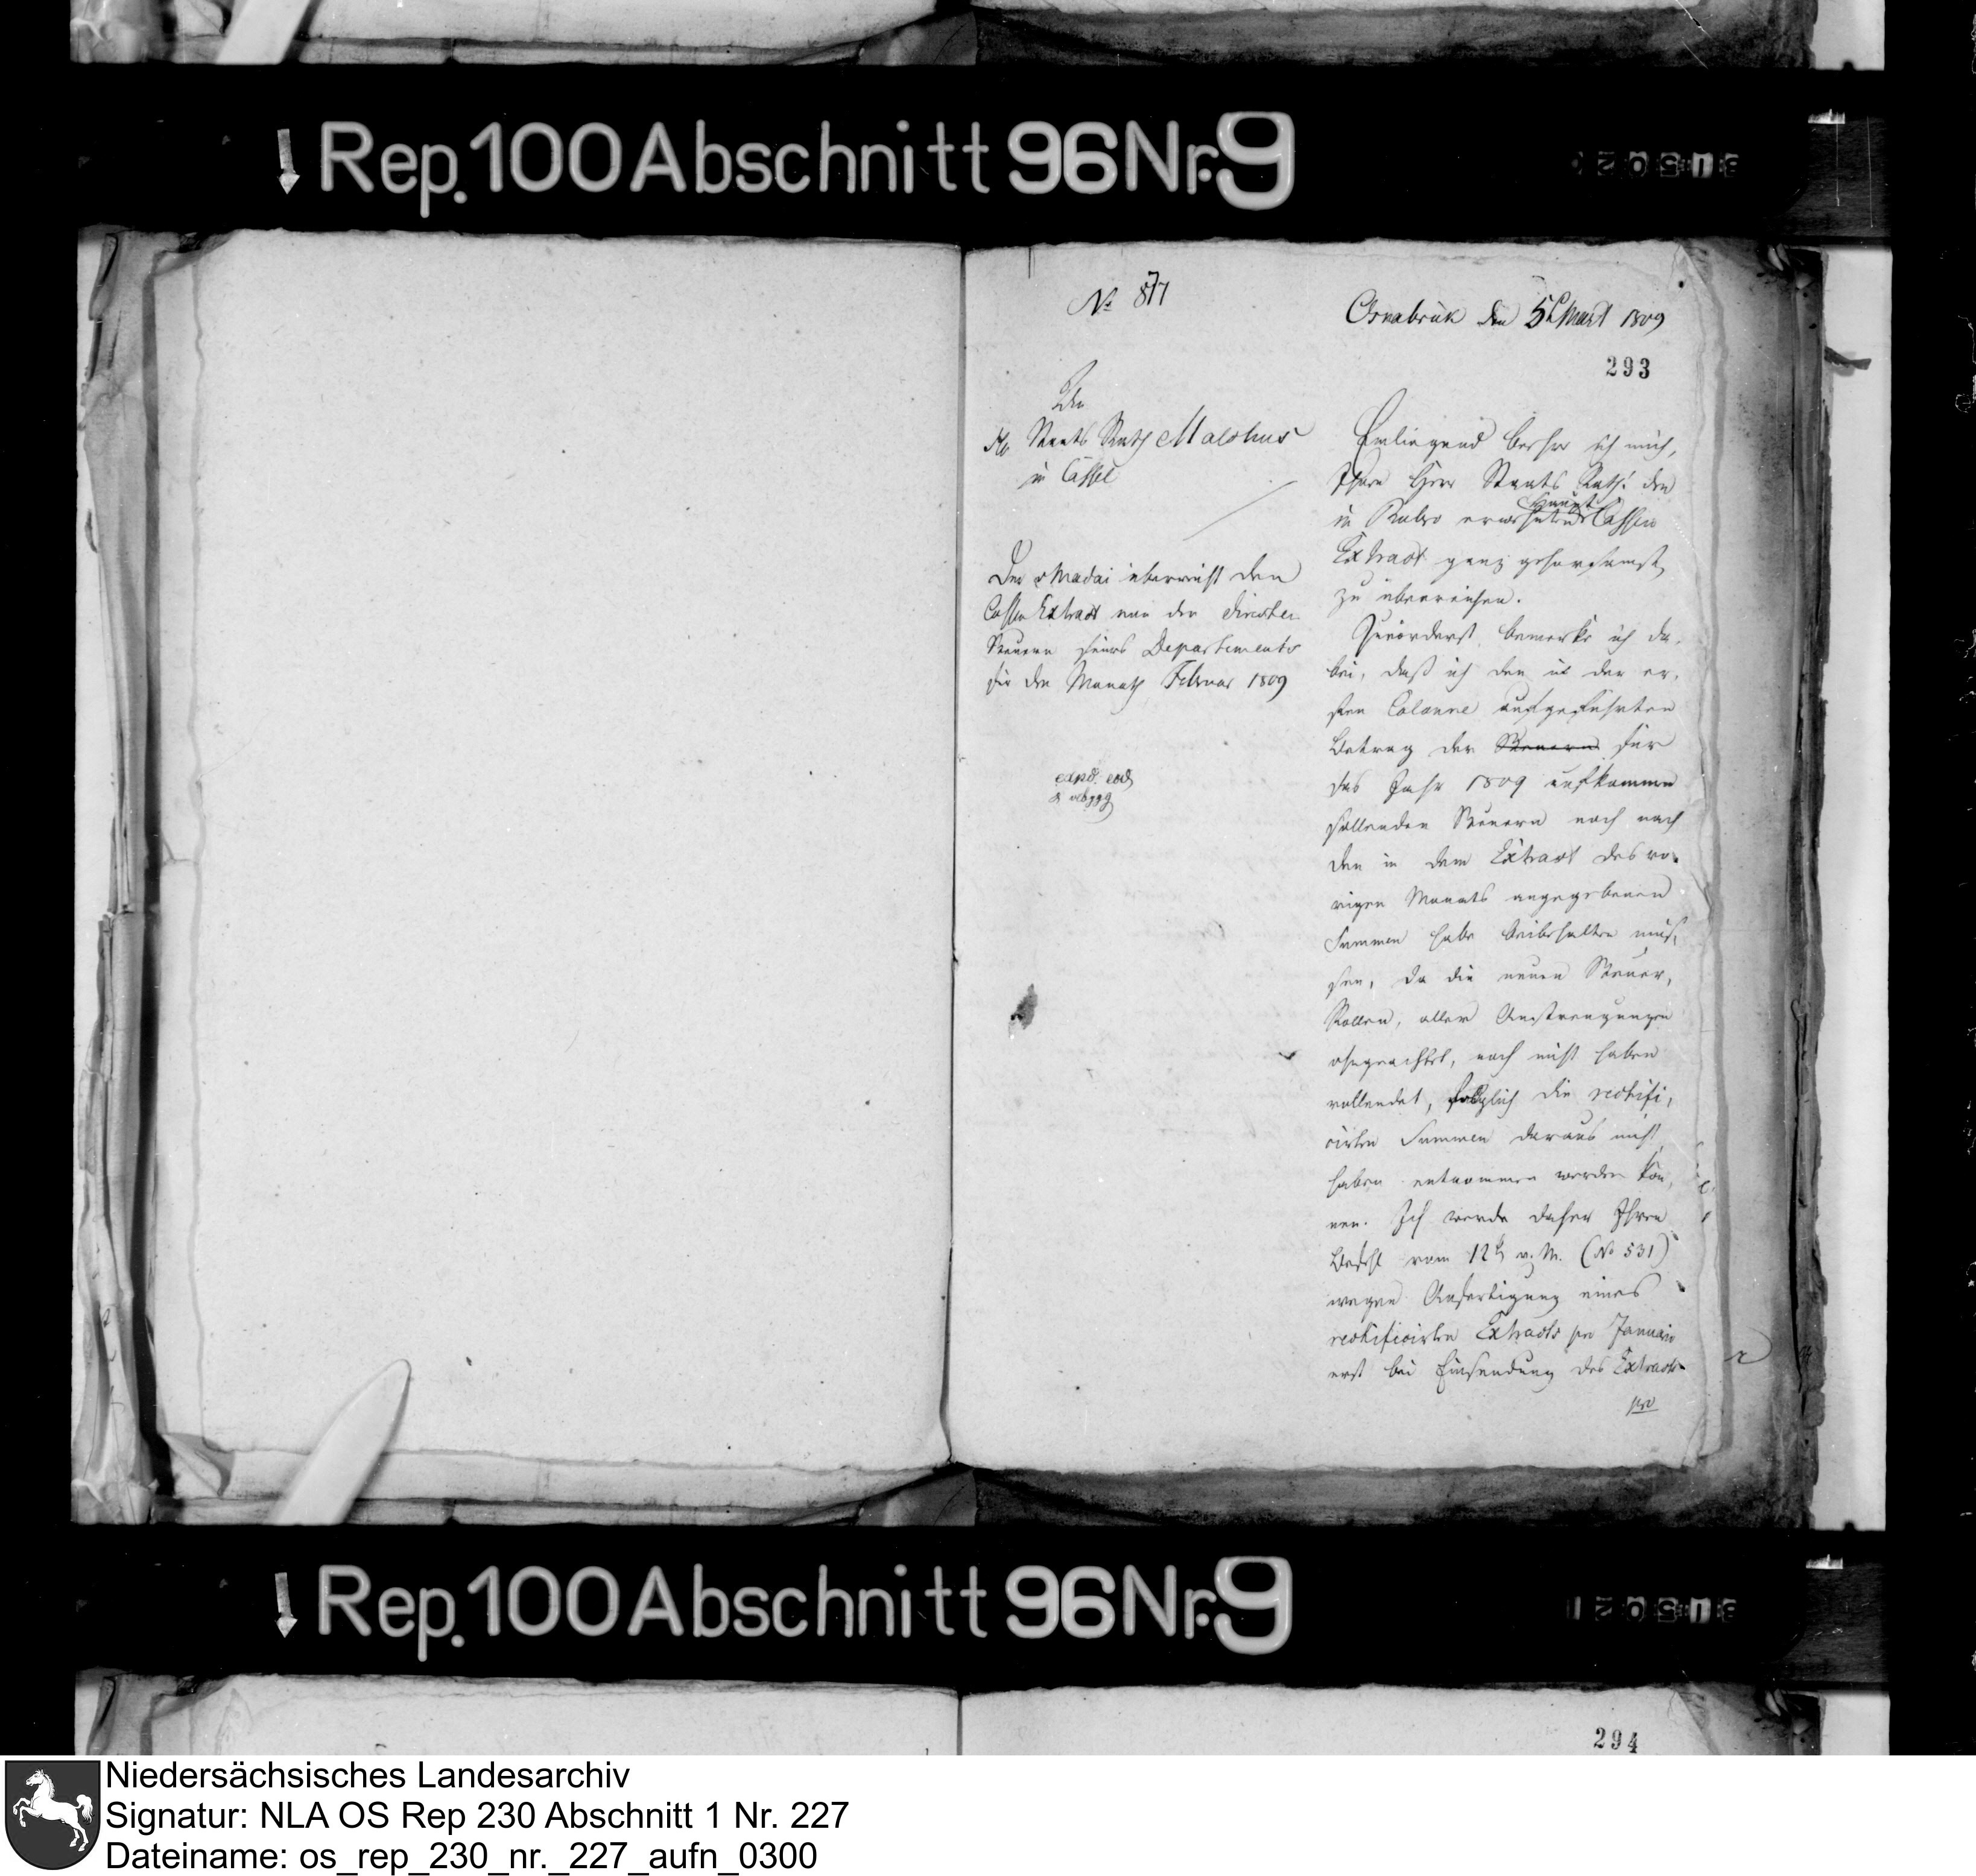 Rep. 100 Abschnitt 96 Nr. 9
No 877
Osnabrück den 5t Maerz 1809
293
Den
Staats Rath Malchus
in Cassel
Der v Madai überreicht den
Cassen Extract von den directen
Steuern seines Departements
für den Monath Februar 1809
expd. eod
Einliegend beehre ich mich,
Ihnen Herr Staats Rath! den
in Rubro erwehnten Haupt Cassen
Extract ganz gehorsamst
zu überreichen.
Zuvörderst bemerke ich da-
bei, daß ich den in der er-
sten Colonne aufgeführten
Betrag der Steuern für
das Jahr 1809 aufkommen
sollenden Steuern noch nach
den in dem Extract des vo-
rigen Monats angegebenen
Summen habe beibehalten müs-
sen, da die neuen Steuer-
Rollen, aller Anstrengungen
ohngeachtet, noch nicht haben
vollendet, folglich die rectifi-
cirten Summen daraus nicht
haben entnommen werden kön-
nen. Ich werde daher Ihren
Befehl vom 12t v. M. (No 531)
wegen Anfertigung eines
rectificirten Extracts pro Januar
erst bei Einsendung des Extracts
pro
Rep. 100 Abschnitt 96 Nr. 9
294
Niedersächsisches Landesarchiv
Signatur: NLA OS Rep 230 Abschnitt 1 Nr. 227
Dateiname: os_rep_230_nr._227_aufn_0300